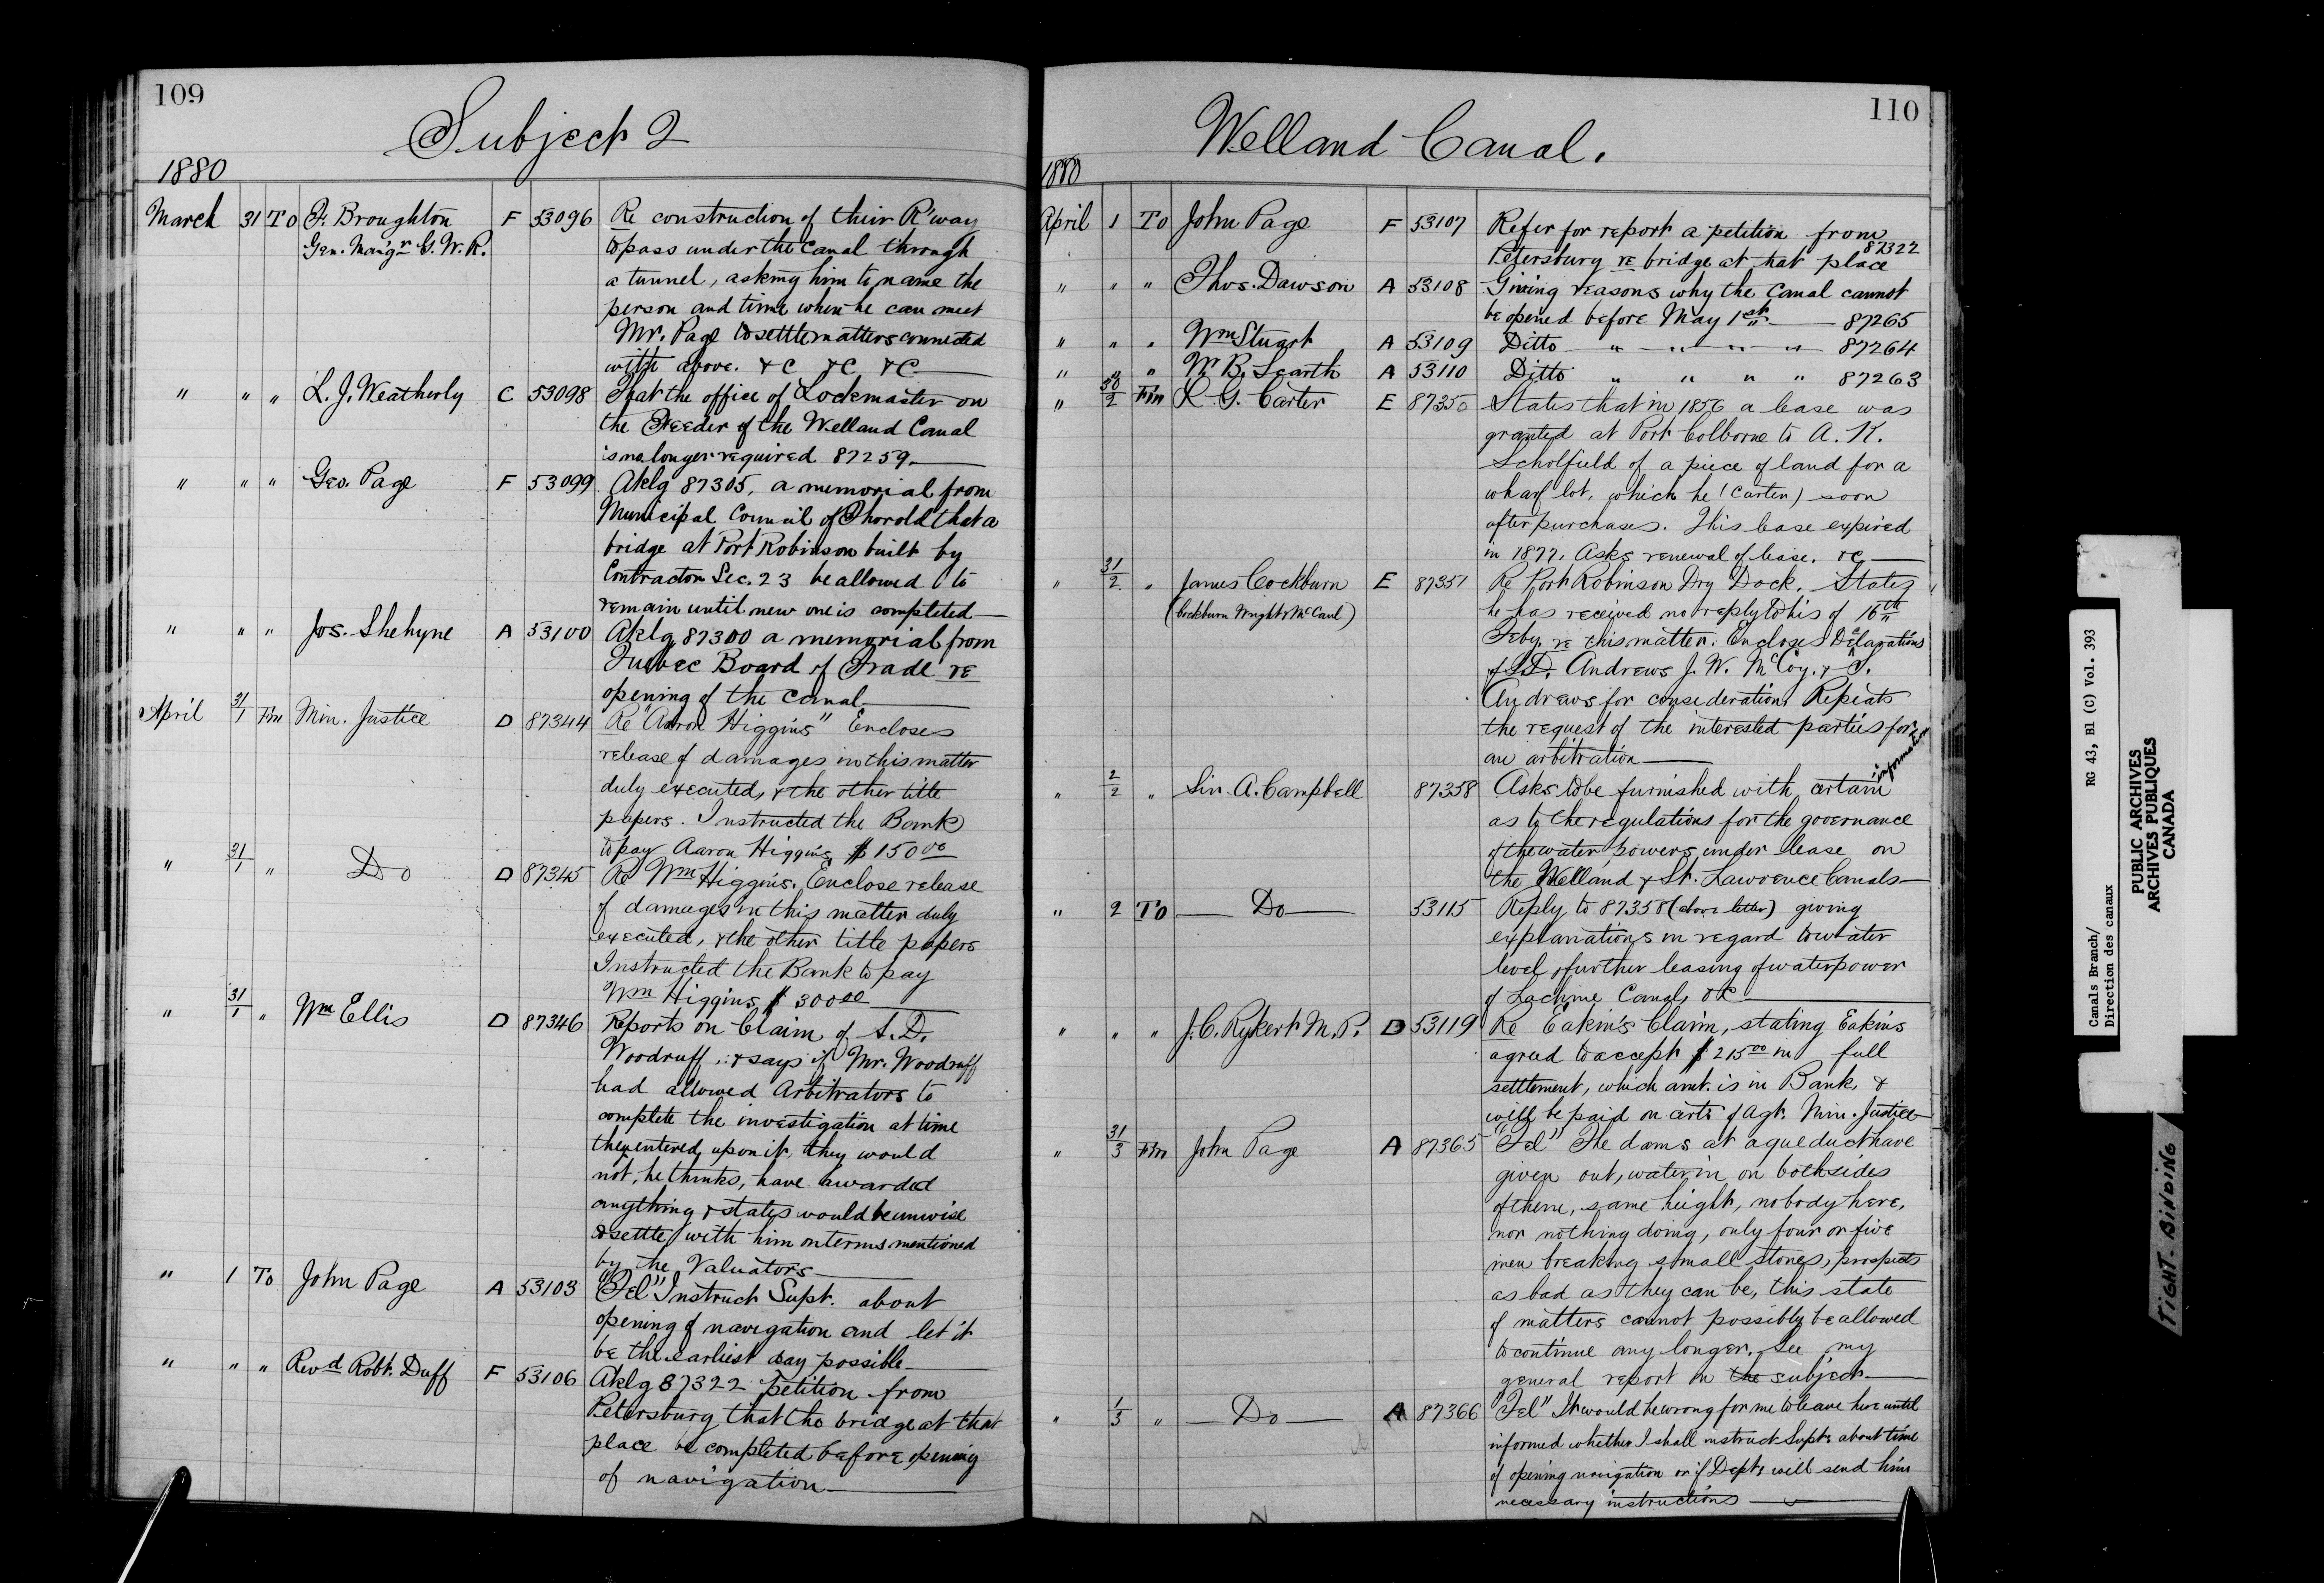 109
Subject 2
1880
March 31 To F. Broughton F 53096 Re construction of their R'way
Gen. Man'gr G. W. R. to pass under the Canal through
a tunnel, asking him to name the
person and time when he can meet
Mr. Page to settle matters connected
with above. &C &C &C
" " " L. J. Weatherly C 53098 That the office of Lockmaster on
the Feeder of the Welland Canal
is no longer required 87259
" " " Geo. Page F 53099 Aklg 87305, a memorial from
Municipal Council of Thorold that a
bridge at Port Robinson built by
Contractor Sec. 23 be allowed to
remain until new one is completed
" " " Jos. Shehyne A 53100 Aklg 87300 a memorial from
Quebec Board of Trade re
opening of the Canal
April 31/1 Fm Min. Justice D 87344 Re "Aaron Higgins" Encloses
release of damages in this matter
duly executed, & the other title
papers. Instructed the Bank
to pay Aaron Higgins $150 00
" 31/1 " Do D 87345 Re Wm Higgins. Enclose release
of damages in this matter duly
executed, & the other title papers
Instructed the Bank to pay
Wm Higgins $300 00
" 31/1 " Wm Ellis D 87346 Reports on Claim of S. D.
Woodruff, & says if Mr. Woodruff
had allowed Arbitrators to
complete the investigation at time
they entered upon it, they would
not, he thinks, have awarded
anything & states would be unwise
to settle with him on terms mentioned
by the Valuators
" 1 To John Page A 53103 "Tel" Instruct Supt. about
opening of navigation and let it
be the earliest day possible
" " " Revd Robt. Duff F 53106 Aklg 87322 petition from
Petersburg that the bridge at that
place be completed before opening
of navigation
110
Welland Canal.
1880
April 1 To John Page F 53107 Refer for report a petition from
87322
Petersburg re bridge at that place
" " " Thos. Dawson A 53108 Giving reasons why the Canal cannot
be opened before May 1st. 87265
" " " Wm Stuart A 53109 Ditto " " " " 87264
" " " W. B. Scarth A 53110 Ditto " " " " 87263
" 30/2 Fm L. G. Carter E 87350 States that in 1856 a lease was
granted at Port Colborne to A. K.
Scholfield of a piece of land for a
wharf lot, which he (Carter) soon
after purchases. This lease expired
in 1877. Asks renewal of lease. &C
" 31/2 " James Cockburn E 87351 Re Port Robinson Dry Dock. States
(Cockburn Wright & McCaul) he has received no reply to his of 16th
Feby. re this matter. Encloses Declarations
of S.D. Andrews J. W. McCoy, & S.
Andrews for consideration. Repeats
the request of the interested parties for
an arbitration
" 2/2 " Sir A. Campbell 87358 Asks to be furnished with certain information
as to the regulations for the governance
of the water powers under lease on
the Welland & St. Lawrence Canals
" 2 To Do 53115 Reply to 87358 (above letter) giving
explanations in regard to water
level, further leasing of waterpower
of Lachine Canal, &C
" " " J. C. Rykert M. P. D 53119 Re Eakin's Claim, stating Eakins
agreed to accept $215 00 in full
settlement, which amt. is in Bank, &
will be paid on certi of Agt. Min. Justice
" 31/3 Fm John Page A 87365 "Tel" The dams at aqueduct have
given out, water in on both sides
of them, same height, nobody here,
nor nothing doing, only four or five
men breaking small stones, prospects
as bad as they can be, this state
of matters cannot possibly be allowed
to continue any longer. See my
general report on the subject
" 1/3 " Do A 87366 "Tel" It would be wrong for me to leave here until
informed whether I shall instruct Supt: about time
of opening navigation or if Dept: will send him
necessary instructions
Canals Branch/ RG 43, B1 (C) Vol. 393
Direction des canaux
PUBLIC ARCHIVES
ARCHIVES PUBLIQUES
CANADA
TIGHT BINDING